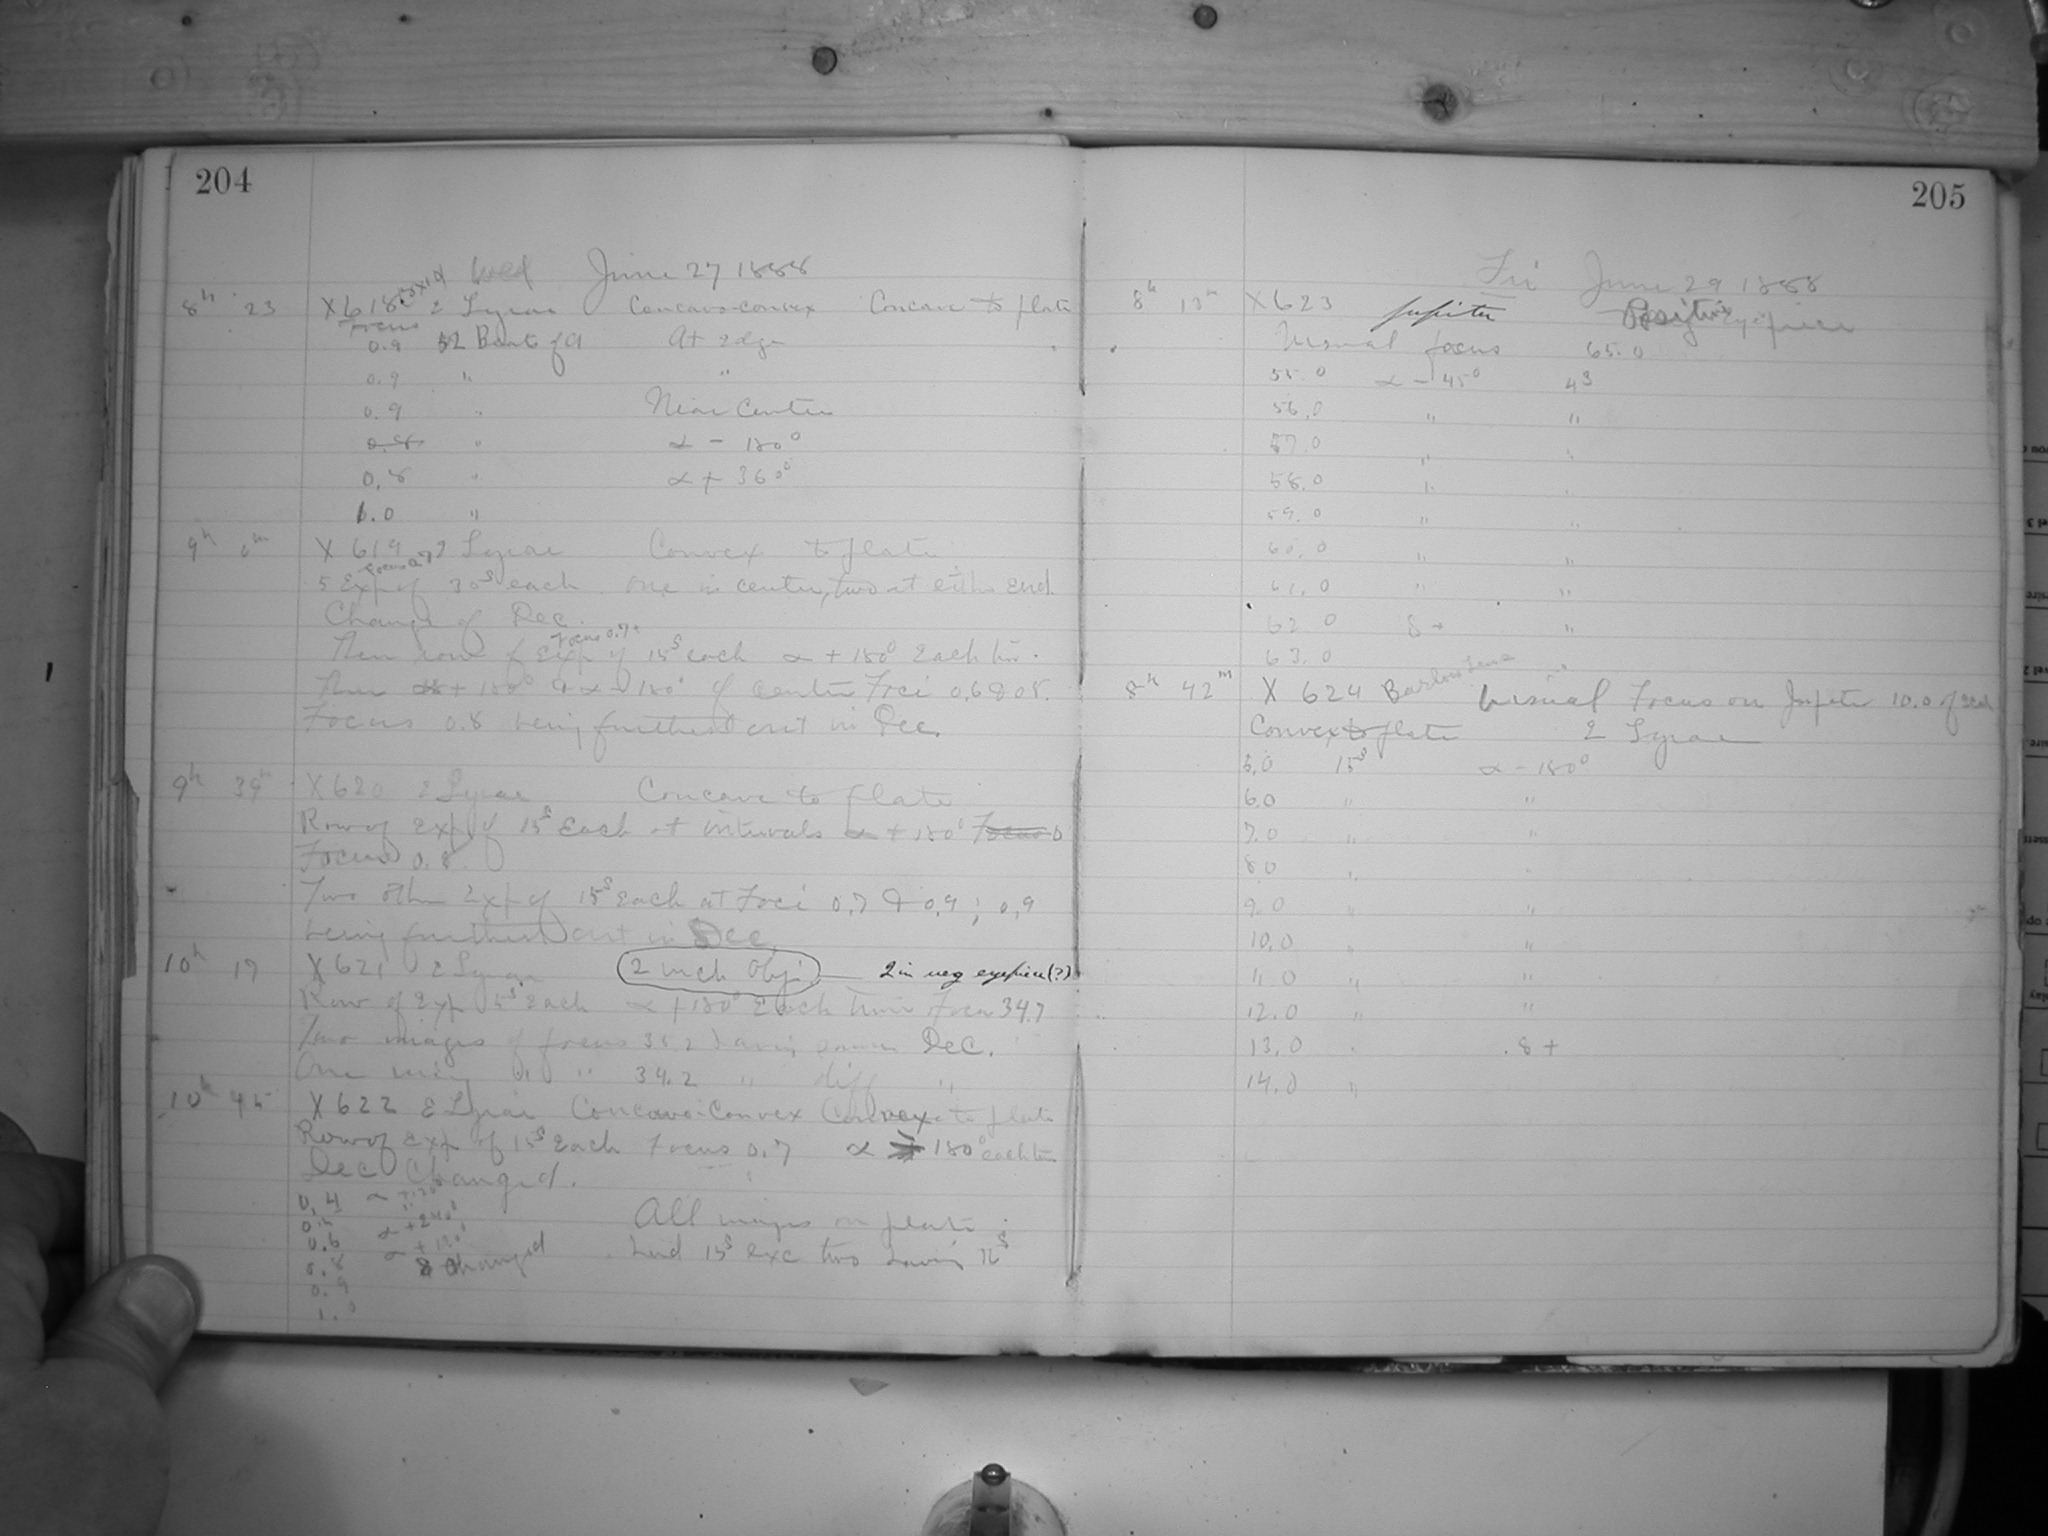 204
Wed June 27 1888
8h 23 X618 ε Lyrae Concavo-convex Concave to plate
Focus
0.9 At edge
0.9 " "
0.9 " Near Center
0.8 " α - 180°
0.8 " α + 360°
1.0 "
9h 0m X 619 ε Lyrae Convex to plate
Focus 0.7
5 Exp of 30s each. One in center, two at either End
Change of Dec.
Focus 0.7
Then row of Exp of 15s each α + 180° Each time.
Then α + 180° & α - 180° of center Foci 0.6 & 0.8.
Focus 0.8 being furthest out in Dec.
9h 39m X620 ε Lyrae Concave to plate
Row of Exp of 15s Each at intervals α + 180°
Focus 0.8
Two other Exp of 15s Each at Foci 0.7 & 0.9; 0.9
being furthest out in Dec.
10h 17 X 621 ε Lyrae 2 inch Obj. 2 in neg eyepiece (?)
Row of Exp 15s Each α + 180° Each time Focus 34.7
Two images of focus 35.2 having same Dec.
One 34.2 " diff "
10h 45 X 622 ε Lyrae Concavo-Convex Convex to plate
Row of Exp. of 15s Each Focus 0.7 α 180° each time
Dec Changed.
0.4
α + 240° All images on plate
0.6 α + 120°
0.8 δ Changed had 15s exc two having
0.9
1.0
205
Fri June 29 1888
8h 13m X623 Jupiter Positive eyepiece
Visual focus 65.0
55.0 α - 45° 4s
56.0 " "
57.0 " "
58.0 " "
59.0 " "
60.0 " "
61.0 " "
62.0 δ + "
63.0
8h 42m X 624 Barlow Lens Visual Focus on Jupiter 10.0 of scale
Convex to plate ε Lyrae
5.0 15s α - 180°
6.0 " "
7.0 " "
8.0 " "
9.0 " "
10.0 " "
11.0 " "
12.0 " "
13.0 " δ +
14.0 "